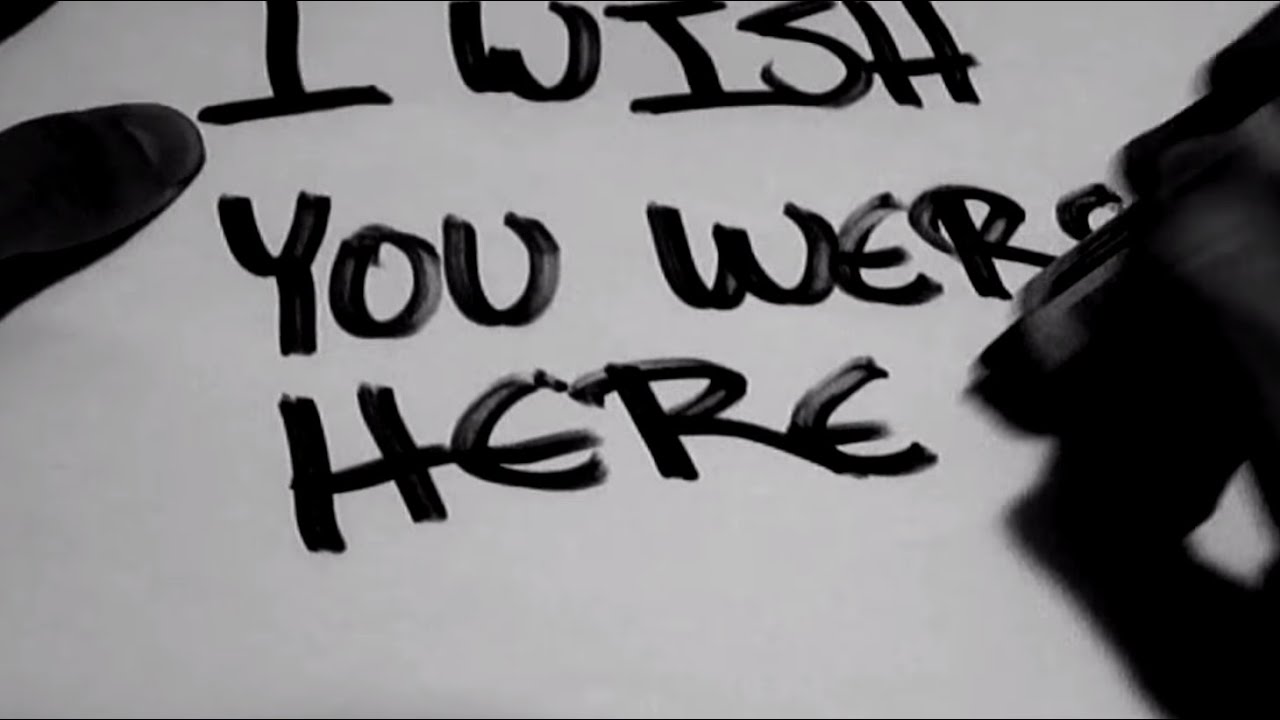 I WISH
YOU WERE
HERE